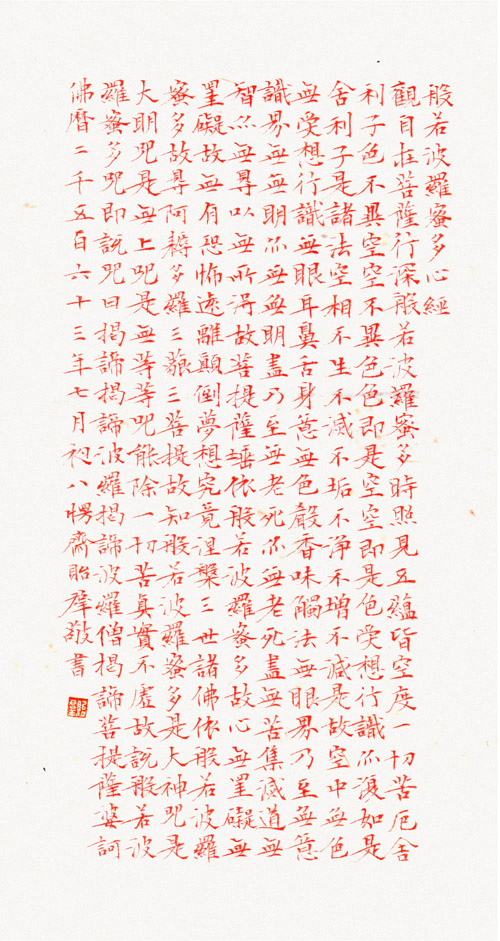 般若波羅蜜多心經
觀自在菩薩行深般若波羅蜜多時照見五蘊皆空度一切苦厄舍
利子色不異空空不異色色即是空空即是色受想行識亦復如是
舍利子是諸法空相不生不滅不垢不淨不增不減是故空中無色
無受想行識無眼耳鼻舌身意無色聲香味觸法無眼界乃至無意
識界無無明亦無無明盡乃至無老死亦無老死盡無苦集滅道無
智亦無得以無所得故菩提薩埵依般若波羅蜜多故心無罣礙無
罣礙故無有恐怖遠離顛倒夢想究竟涅槃三世諸佛依般若波羅
蜜多故得阿耨多羅三藐三菩提故知般若波羅蜜多是大神咒是
大明咒是無上咒是無等等咒能除一切苦真實不虛故說般若波
羅蜜多咒即說咒曰揭諦揭諦波羅揭諦波羅僧揭諦菩提薩婆訶
佛曆二千五百六十三年七月初八愣齋貽群敬書